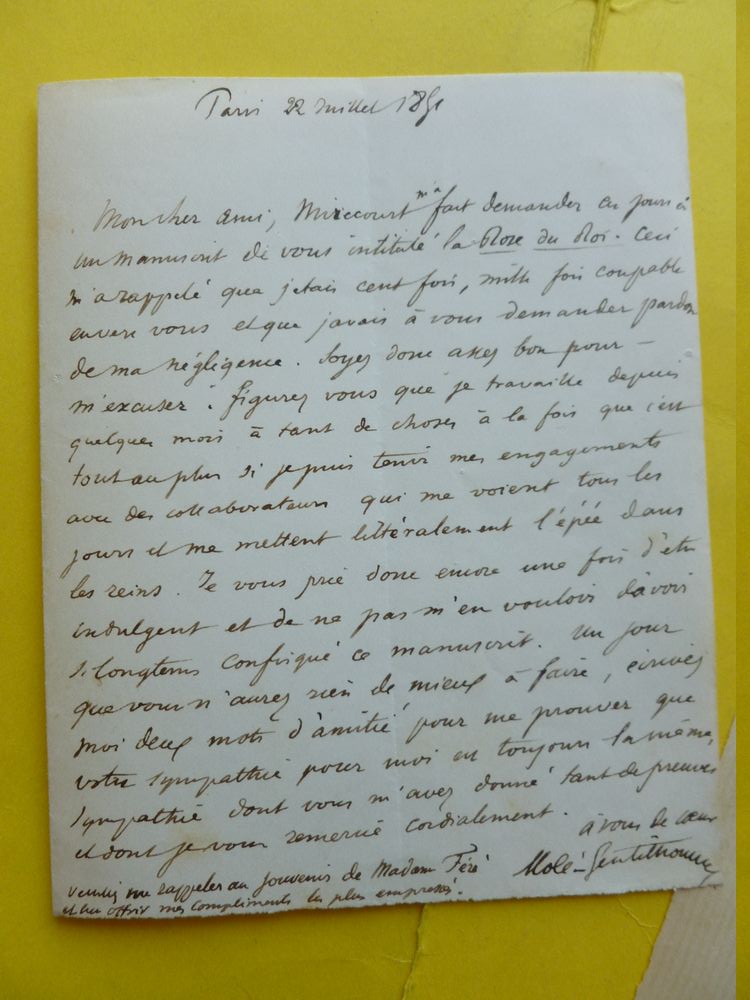 Paris 22 Juillet 1851
Mon cher ami, Mirecourt m'a fait demander ces jours ci
un manuscrit de vous intitulé la Rose du Roi. Ceci
m'a rappelé que j'etais cent fois, mille fois coupable
envers vous et que j'avais à vous demander pardon
de ma négligence. Soyez donc assez bon pour –
m'excuser. figurez vous que je travaille depuis
quelques mois à tant de choses à la fois que c'est
tout au plus si je puis tenir mes engagements
avec des collaborateurs qui me voient tous les
jours et me mettent littéralement l'épée dans
les reins. Je vous prie donc encore une fois d'etre
indulgent et de ne pas m'en vouloir d'avoir
si longtems confisqué ce manuscrit. Un jour
que vous n'aurez rien de mieux à faire, écrivez
moi deux mots d'amitié pour me prouver que
votre sympathie pour moi est toujours la même,
sympathie dont vous m'avez donné tant de preuves
et dont je vous remercie cordialement.
à vous de cœur
Molé-Gentilhomme
veuillez me rappeler au souvenir de Madame Féré
et lui offrir mes compliments les plus empressés.